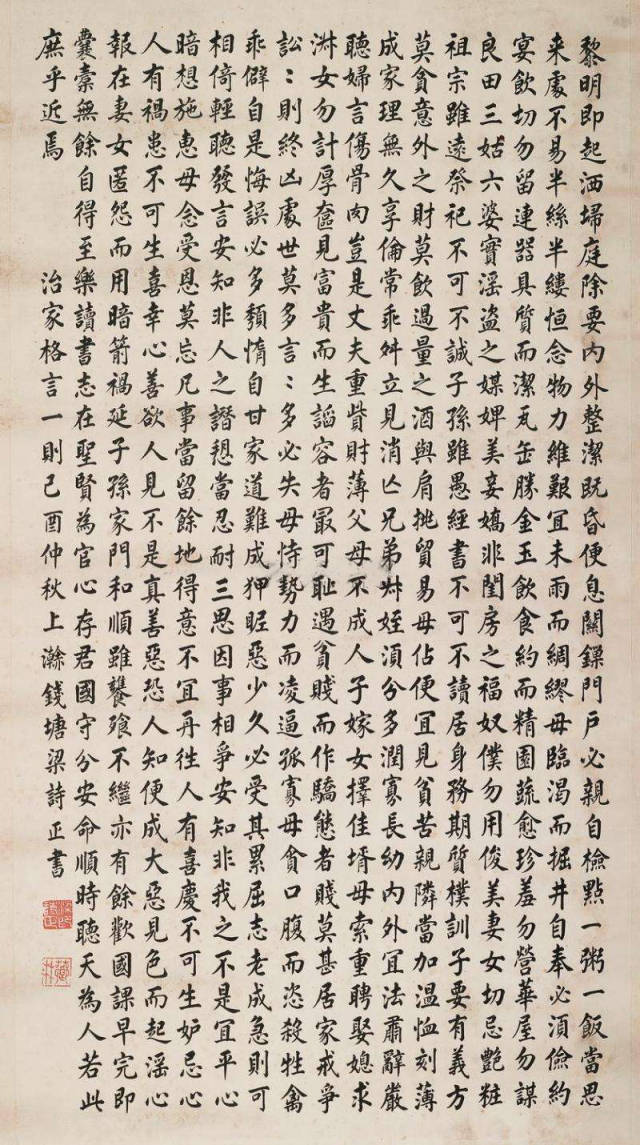 黎明即起洒埽庭除要内外整潔既昏便息關鏁門戶必親自檢點一粥一飯當思
来處不易半絲半縷恒念物力維艱宜未雨而綢繆毋臨渴而掘井自奉必湏儉約
宴飲切勿留連器具質而潔瓦缶勝金玉飲食約而精園蔬愈珍羞勿營華屋勿謀
良田三姑六婆實滛盗之媒婢美妾嬌非閨房之福奴僕勿用俊美妻女切忌艷粧
祖宗雖遠祭祀不可不誠子孫雖愚經書不可不讀居身務期質樸訓子要有義方
莫貪意外之財莫飲過量之酒與肩挑貿易毋佔便宜見貧苦親隣當加温恤刻薄
成家理無久享倫常乖舛立見消亾兄弟叔姪湏分多潤寡長幼内外宜法肅辭嚴
聽婦言傷骨肉豈是丈夫重貲財薄父母不成人子嫁女擇佳壻毋索重聘娶媳求
淑女勿計厚奩見富貴而生謟容者最可耻遇貧賤而作驕態者賤莫甚居家戒爭
訟〻則終凶處世莫多言〻多必失毋恃勢力而凌逼孤寡毋貪口腹而恣殺牲禽
乖僻自是悔誤必多頹惰自甘家道難成狎昵惡少久必受其累屈志老成急則可
相倚輕聽發言安知非人之譖愬當忍耐三思因事相爭安知非我之不是宜平心
暗想施惠毋念受恩莫忘凡事當留餘地得意不宜再往人有喜慶不可生妒忌心
人有禍患不可生喜幸心善欲人見不是真善惡恐人知便成大惡見色而起滛心
報在妻女匿怨而用暗箭禍延子孫家門和順雖饔飱不繼亦有餘歡國課早完即
囊橐無餘自得至樂讀書志在聖賢為官心存君國守分安命順時聽天為人若此
庶乎近焉 治家格言一則己酉仲秋上澣錢塘梁詩正書